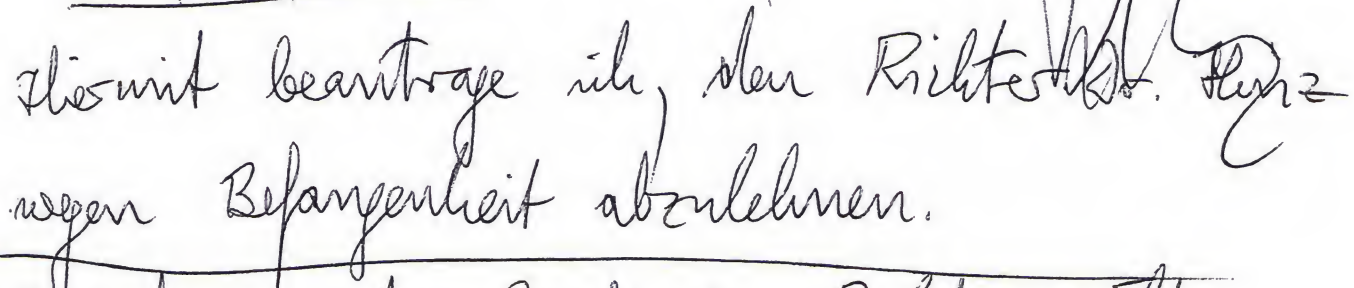 Hiermit beantrage ich, den Richter
wegen Befangenheit abzulehnen.